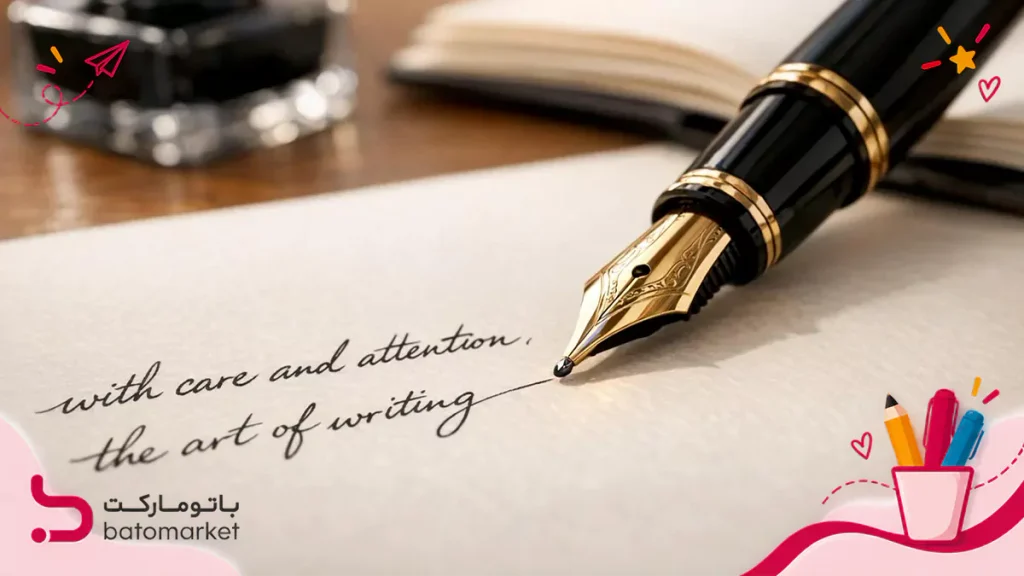 with care and attention.
the art of writing
باتومارکت
batomarket